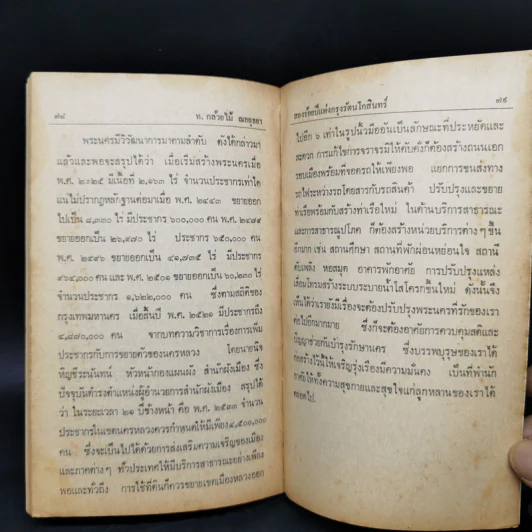 ๗๘ ท. กล้วยไม้ ณอยุธยา
พระนครมีวิวัฒนาการมาตามลำดับ ดังได้กล่าวมา
แล้วและพอจะสรุปได้ว่า เมื่อเริ่มสร้างพระนครเมื่อ
พ.ศ. ๒๓๒๕ มีเนื้อที่ ๒,๑๖๓ ไร่ จำนวนประชากรเท่าใด
แน่ไม่ปรากฏหลักฐานต่อมาเมื่อ พ.ศ. ๒๔๔๓ ขยายออก
ไปเป็น ๘,๓๓๐ ไร่ มีประชากร ๖๐๐,๐๐๐ คน พ.ศ. ๒๔๗๙
ขยายออกเป็น ๒๖,๙๗๐ ไร่ ประชากร ๖๕๐,๐๐๐ คน
พ.ศ. ๒๔๙๖ ขยายออกเป็น ๔๑,๗๓๕ ไร่ มีประชากร
๙๖๔,๐๐๐ คน และ พ.ศ. ๒๕๐๑ ขยายออกเป็น ๖๐,๒๓๐ ไร่
จำนวนประชากร ๑,๖๒๒,๐๐๐ คน ซึ่งตามสถิติของ
กรุงเทพมหานคร เมื่อสิ้นปี พ.ศ. ๒๕๒๑ มีประชากรถึง
๔,๘๗๐,๐๐๐ คน จากบทความวิชาการเรื่องการเพิ่ม
ประชากรกับการขยายตัวของนครหลวง โดยนายนิจ
หิญชีระนันทน์ หัวหน้ากองแผนผัง สำนักผังเมือง ซึ่ง
ปัจจุบันดำรงตำแหน่งผู้อำนวยการสำนักผังเมือง สรุปได้
ว่า ในระยะเวลา ๒๑ ปีข้างหน้า คือ พ.ศ. ๒๕๓๓ จำนวน
ประชากรในเขตนครหลวงควรกำหนดให้มีเพียง ๔,๕๐๐,๐๐๐
คน ซึ่งจะเป็นไปได้ด้วยการส่งเสริมความเจริญของเมือง
และภาคต่างๆ ทั่วประเทศให้มีบริการสาธารณะอย่างเพียง
พอและทั่วถึง การใช้ที่ดินก็ควรขยายเขตเมืองหลวงออก
สองร้อยปีแห่งกรุงรัตนโกสินทร์ ๗๙
ไปอีก ๖ เท่าในรูปนิ้วมืออันเป็นลักษณะที่ประหยัดและ
สะดวก การแก้ไขการจราจรมิให้คับคั่งก็ต้องสร้างถนนเอก
รอบเมืองพร้อมที่จอดรถให้เพียงพอ แยกการขนส่งทาง
รถไฟระหว่างรถโดยสารกับรถสินค้า ปรับปรุงและขยาย
ท่าเรือพร้อมกับสร้างท่าเรือใหม่ ในด้านบริการสาธารณะ
และการสาธารณูปโภค ก็ต้องสร้างหน่วยบริการต่างๆ ขึ้น
อีกมาก เช่น สถานศึกษา สถานที่พักผ่อนหย่อนใจ สถานี
ดับเพลิง หอสมุด อาคารพักอาศัย การปรับปรุงแหล่ง
เสื่อมโทรมสร้างระบบระบายน้ำโสโครกขึ้นใหม่ ดังนั้นจึง
เห็นได้ว่าเรายังมีเรื่องจะต้องปรับปรุงพระนครที่รักของเรา
ต่อไปอีกมากมาย ซึ่งก็จะต้องอาศัยการควบคุมสติและ
ปัญญาช่วยกันบำรุงรักษานคร ซึ่งบรรพบุรุษของเราได้
ก่อสร้างไว้นี้ให้เจริญรุ่งเรืองมีความมั่นคง เป็นที่พำนัก
อาศัยให้ทั้งความสุขกายและสุขใจแก่ลูกหลานของเราได้
ตลอดไป.